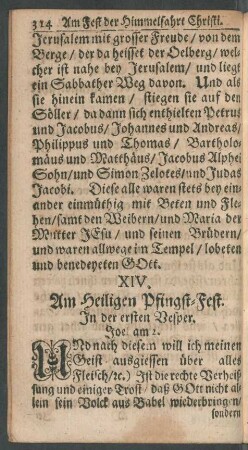 314 Am Fest der Himmelfahrt Christi.
Jerusalem mit grosser Freude/ von dem
Berge/ der da heisset der Oelberg/ wel-
cher ist nahe bey Jerusalem/ und liegt
ein Sabbather Weg davon. Und als
sie hinein kamen/ stiegen sie auf den
Söller/ da dann sich enthielten Petrus
und Jacobus/ Johannes und Andreas/
Philippus und Thomas/ Bartholo-
mäus und Matthäus/ Jacobus Alphei
Sohn/ und Simon Zelotes/ und Judas
Jacobi. Diese alle waren stets bey ein-
ander einmüthig mit Beten und Fle-
hen/ samt den Weibern/ und Maria der
Mutter JEsu/ und seinen Brüdern/
und waren allwege im Tempel/ lobeten
und benedeyeten GOtt.
XIV.
Am Heiligen Pfingst-Fest.
In der ersten Vesper.
Joel am 2.
UNd nach diesem will ich meinen
Geist ausgiessen über alles
Fleisch/ ꝛc.) Ist die rechte Verheis-
sung und einiger Trost/ daß GOtt nicht al-
lein sein Volck aus Babel wiederbringen/
sondern